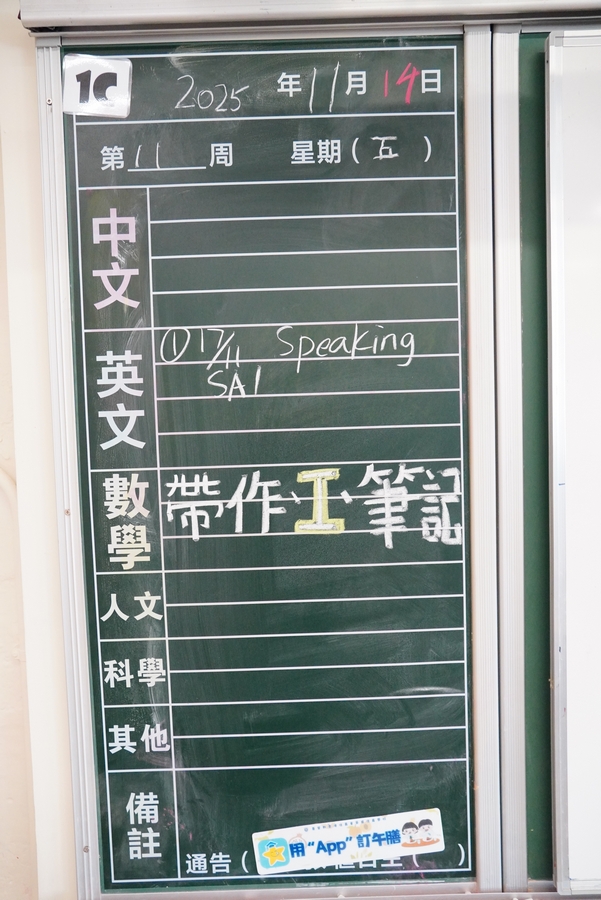 1C
2025 年 11 月 14 日
第 11 周 星期 ( 五 )
中文
英文
① 17/11 Speaking
SA1
數學
帶作、工、筆記
人文
科學
其他
備註
用 “App” 訂午膳
通告 ( )